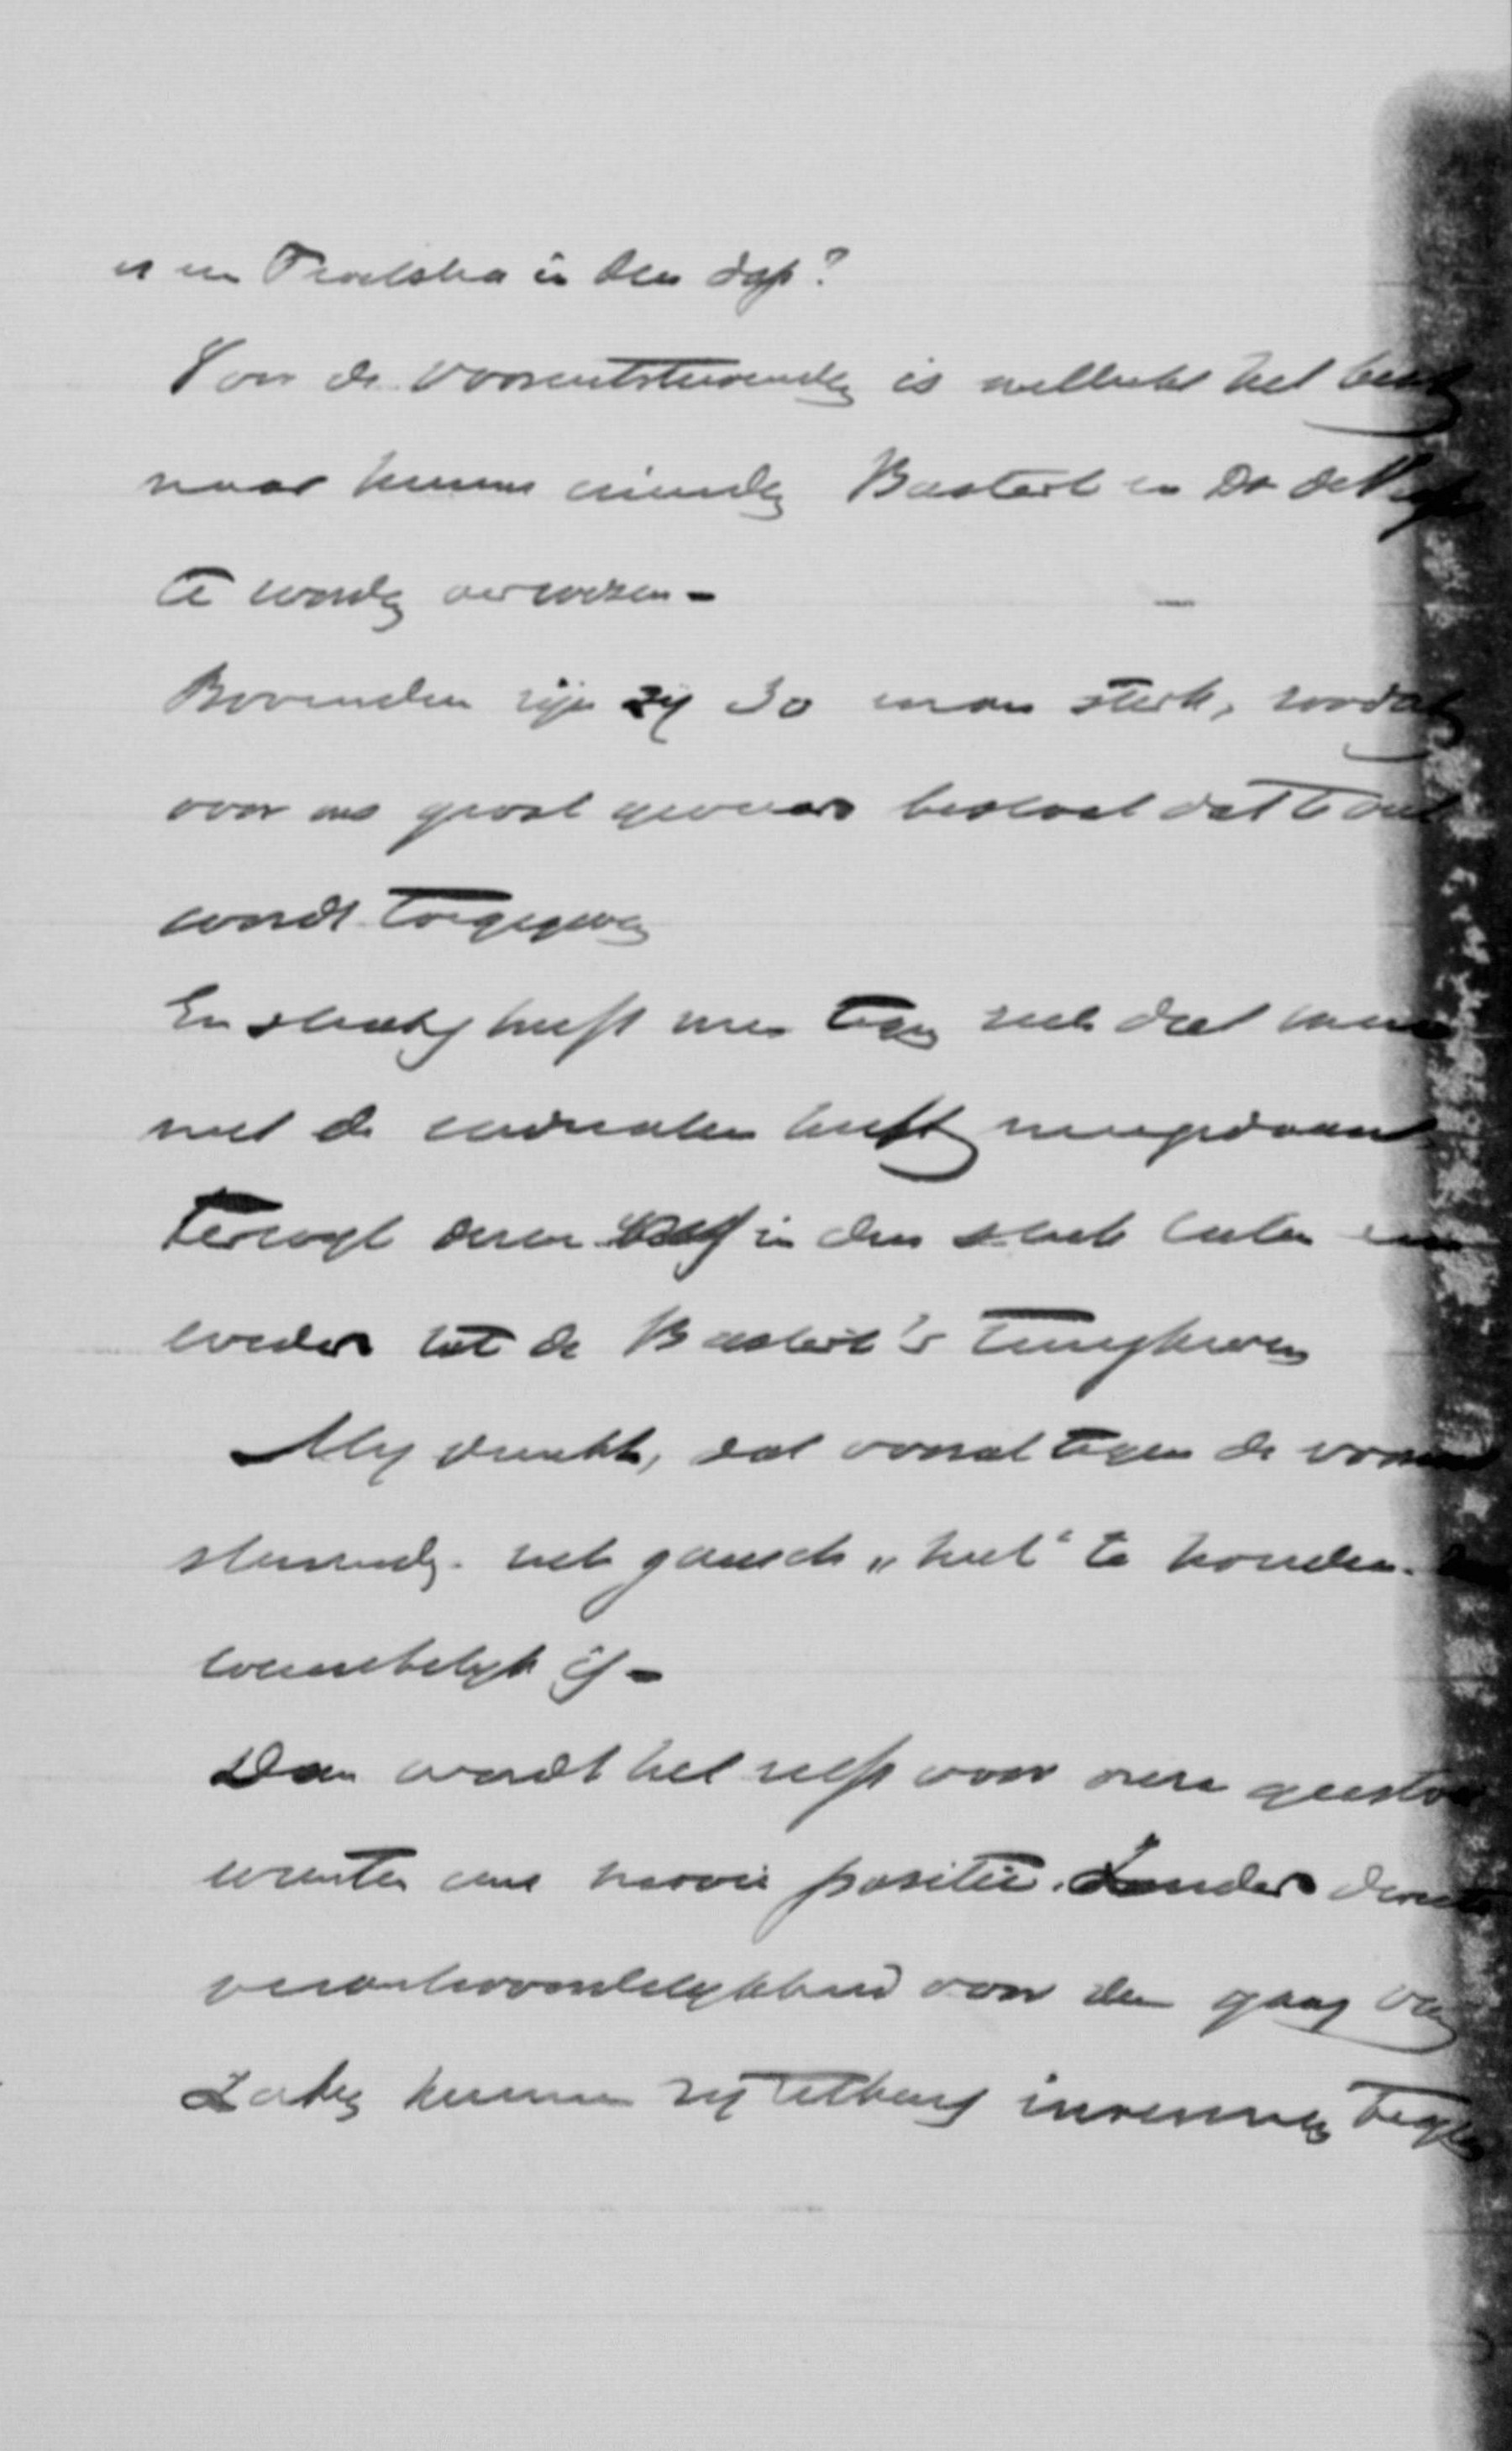 is een Troelstra in den dop?
Voor de vooruitstrevenden is wellicht het beste
naar hunne vrienden Bastert en Dr de
te worden verwezen -
Bovendien zijn zij 30 man sterk, zoodat
voor ons groot gevaar bestaat dat te veel
wordt toegegeven
En slechts heeft men tegen zich dat men
met de radicalen heeft meegedaan
Terwijl dezen in den steek laten en
weder tot de Bastert's terugkeeren
Mij dunkt, dat vooral tegen de vooruit
strevenden. zich gansch „heel" te houden.
wenschelijk is -
Dan wordt het zelfs voor onze geestver
wanten eene mooie positie. Zonder directe
verantwoordelijkheid voor den gang van
Zaken kunnen zij telkens tegen